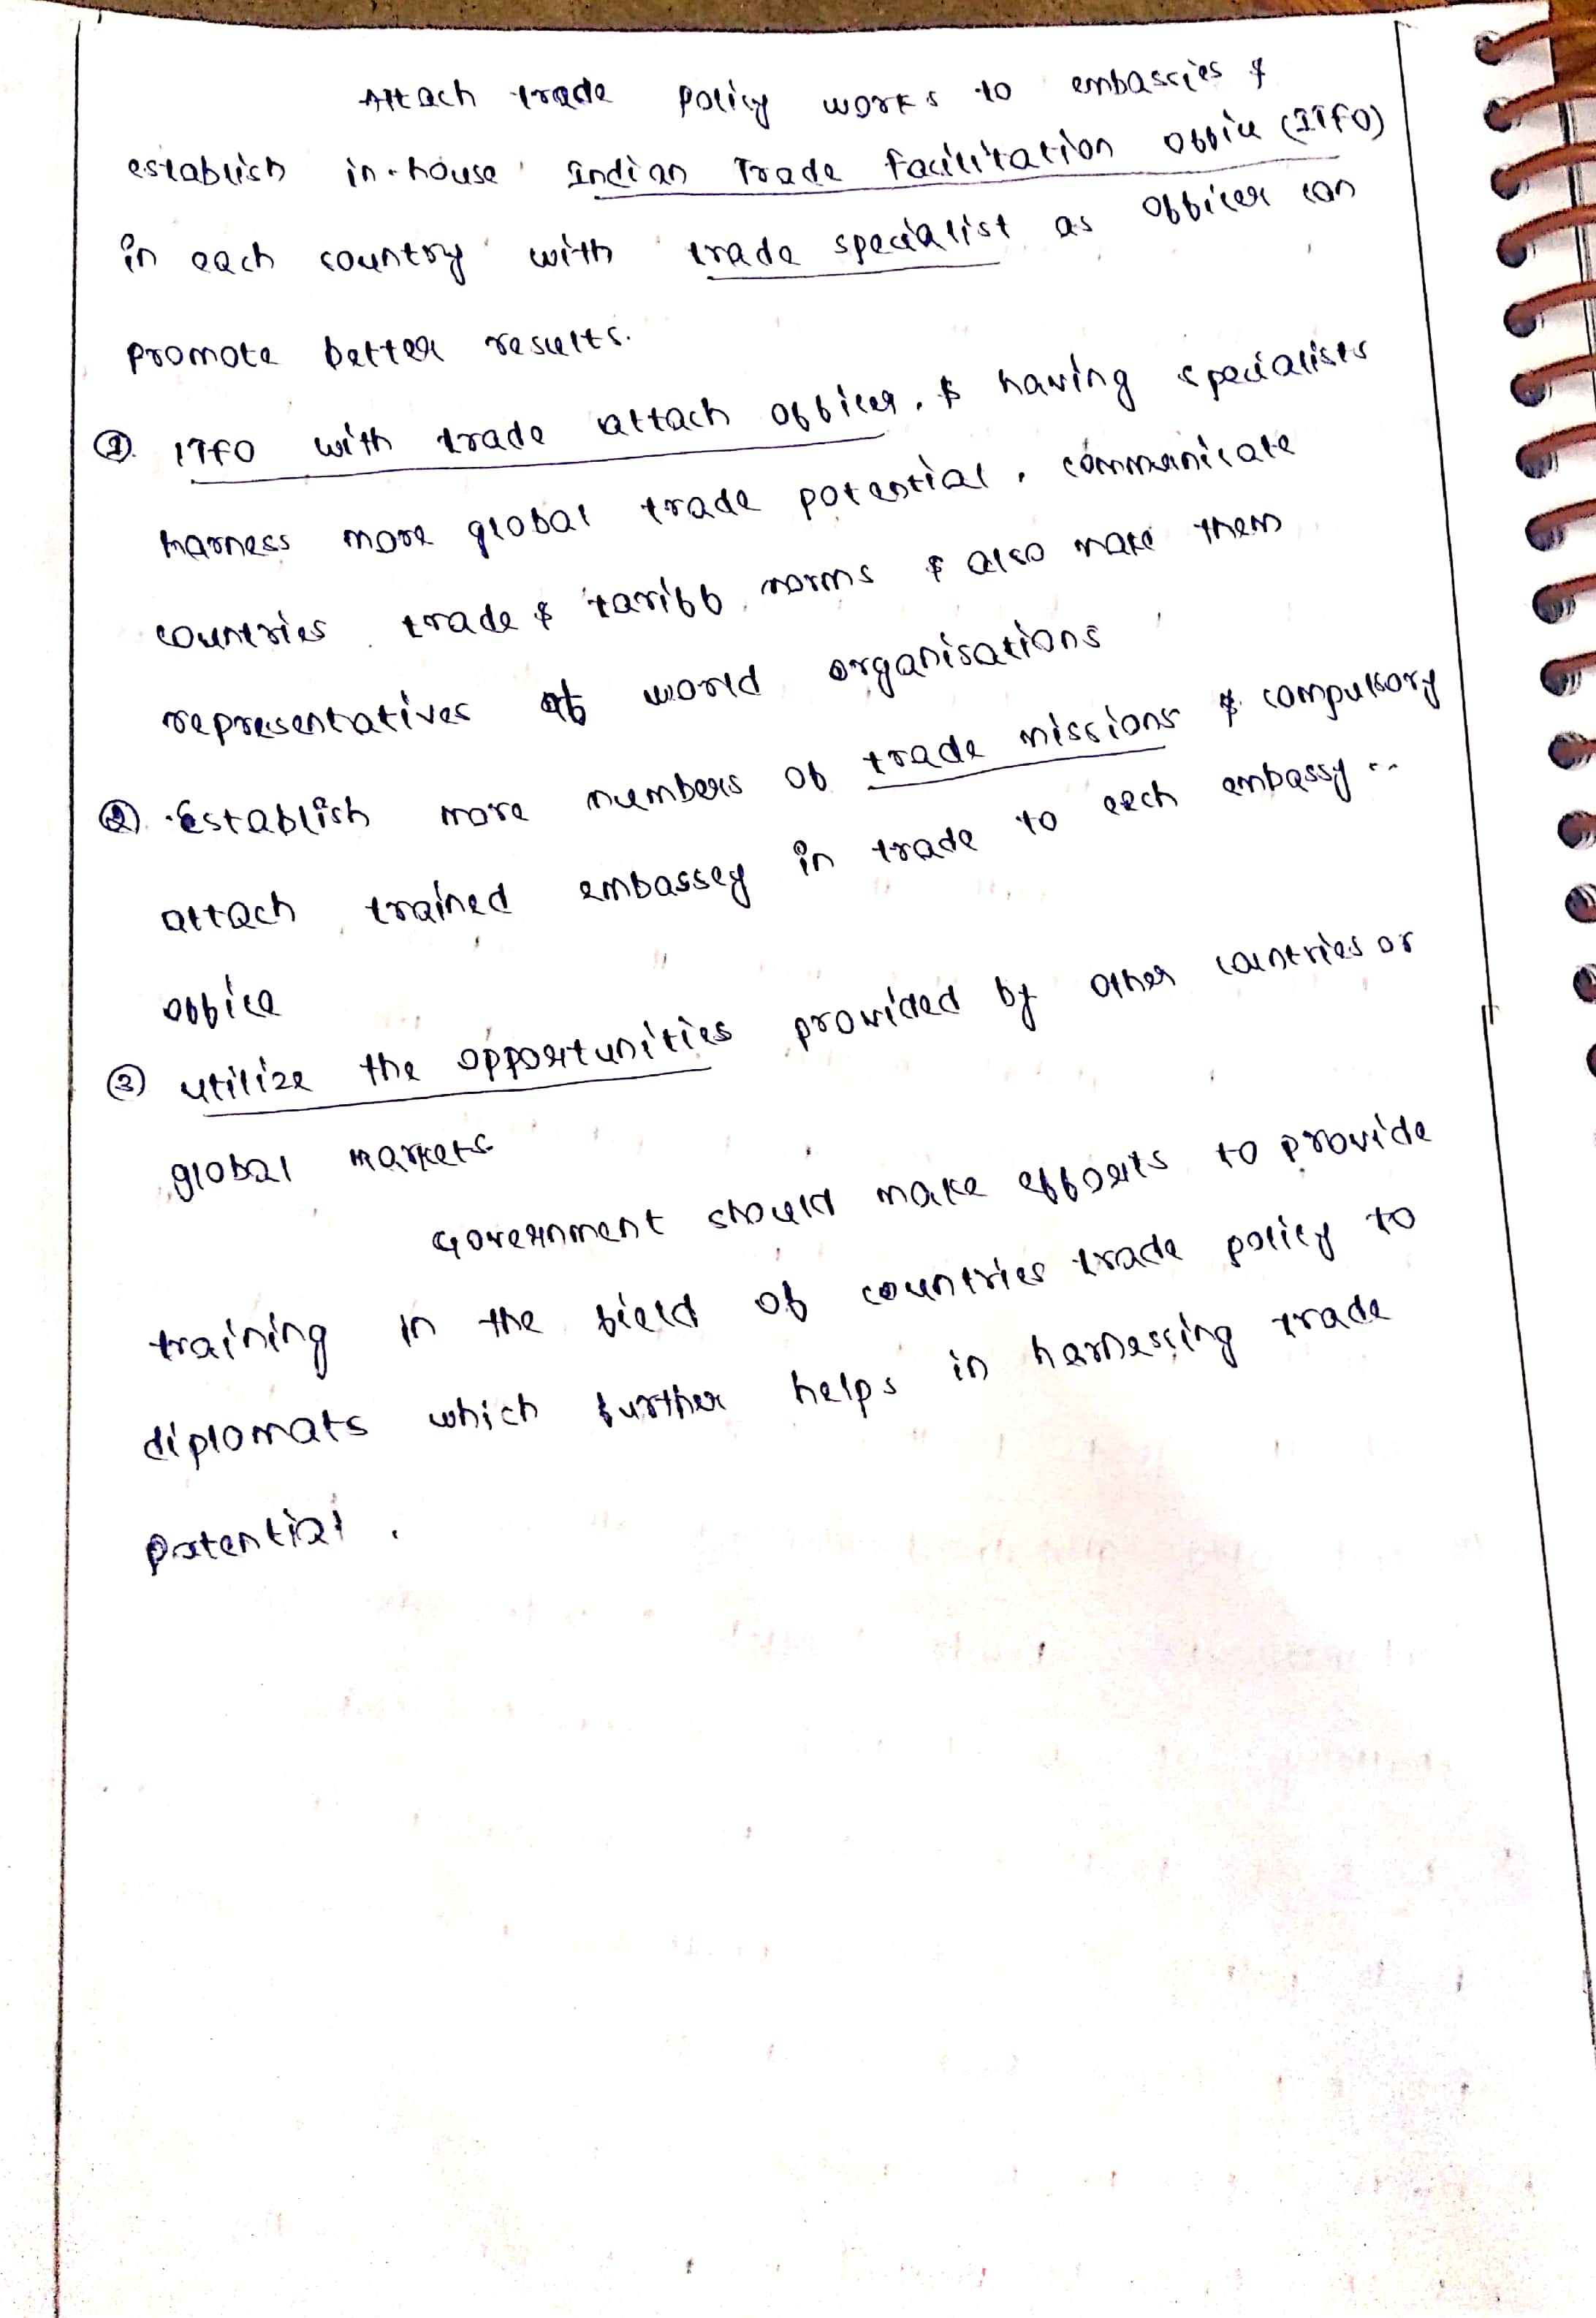 Attach trade policy works to embassies &
establish in-house Indian Trade Facilitation Office (ITFO)
in each country with trade specialist as officer can
promote better results.
① ITFO with trade attach officer, & having specialists
harness more global trade potential, communicate
countries trade & tariff norms & also make them
representatives at world organisations
② Establish more numbers of trade missions & compulsory
attach trained embassey in trade to each embassy
office
③ utilize the opportunities provided by other countries or
global markets
Government should make efforts to provide
training in the field of countries trade policy to
diplomats which further helps in harnessing trade
potential.